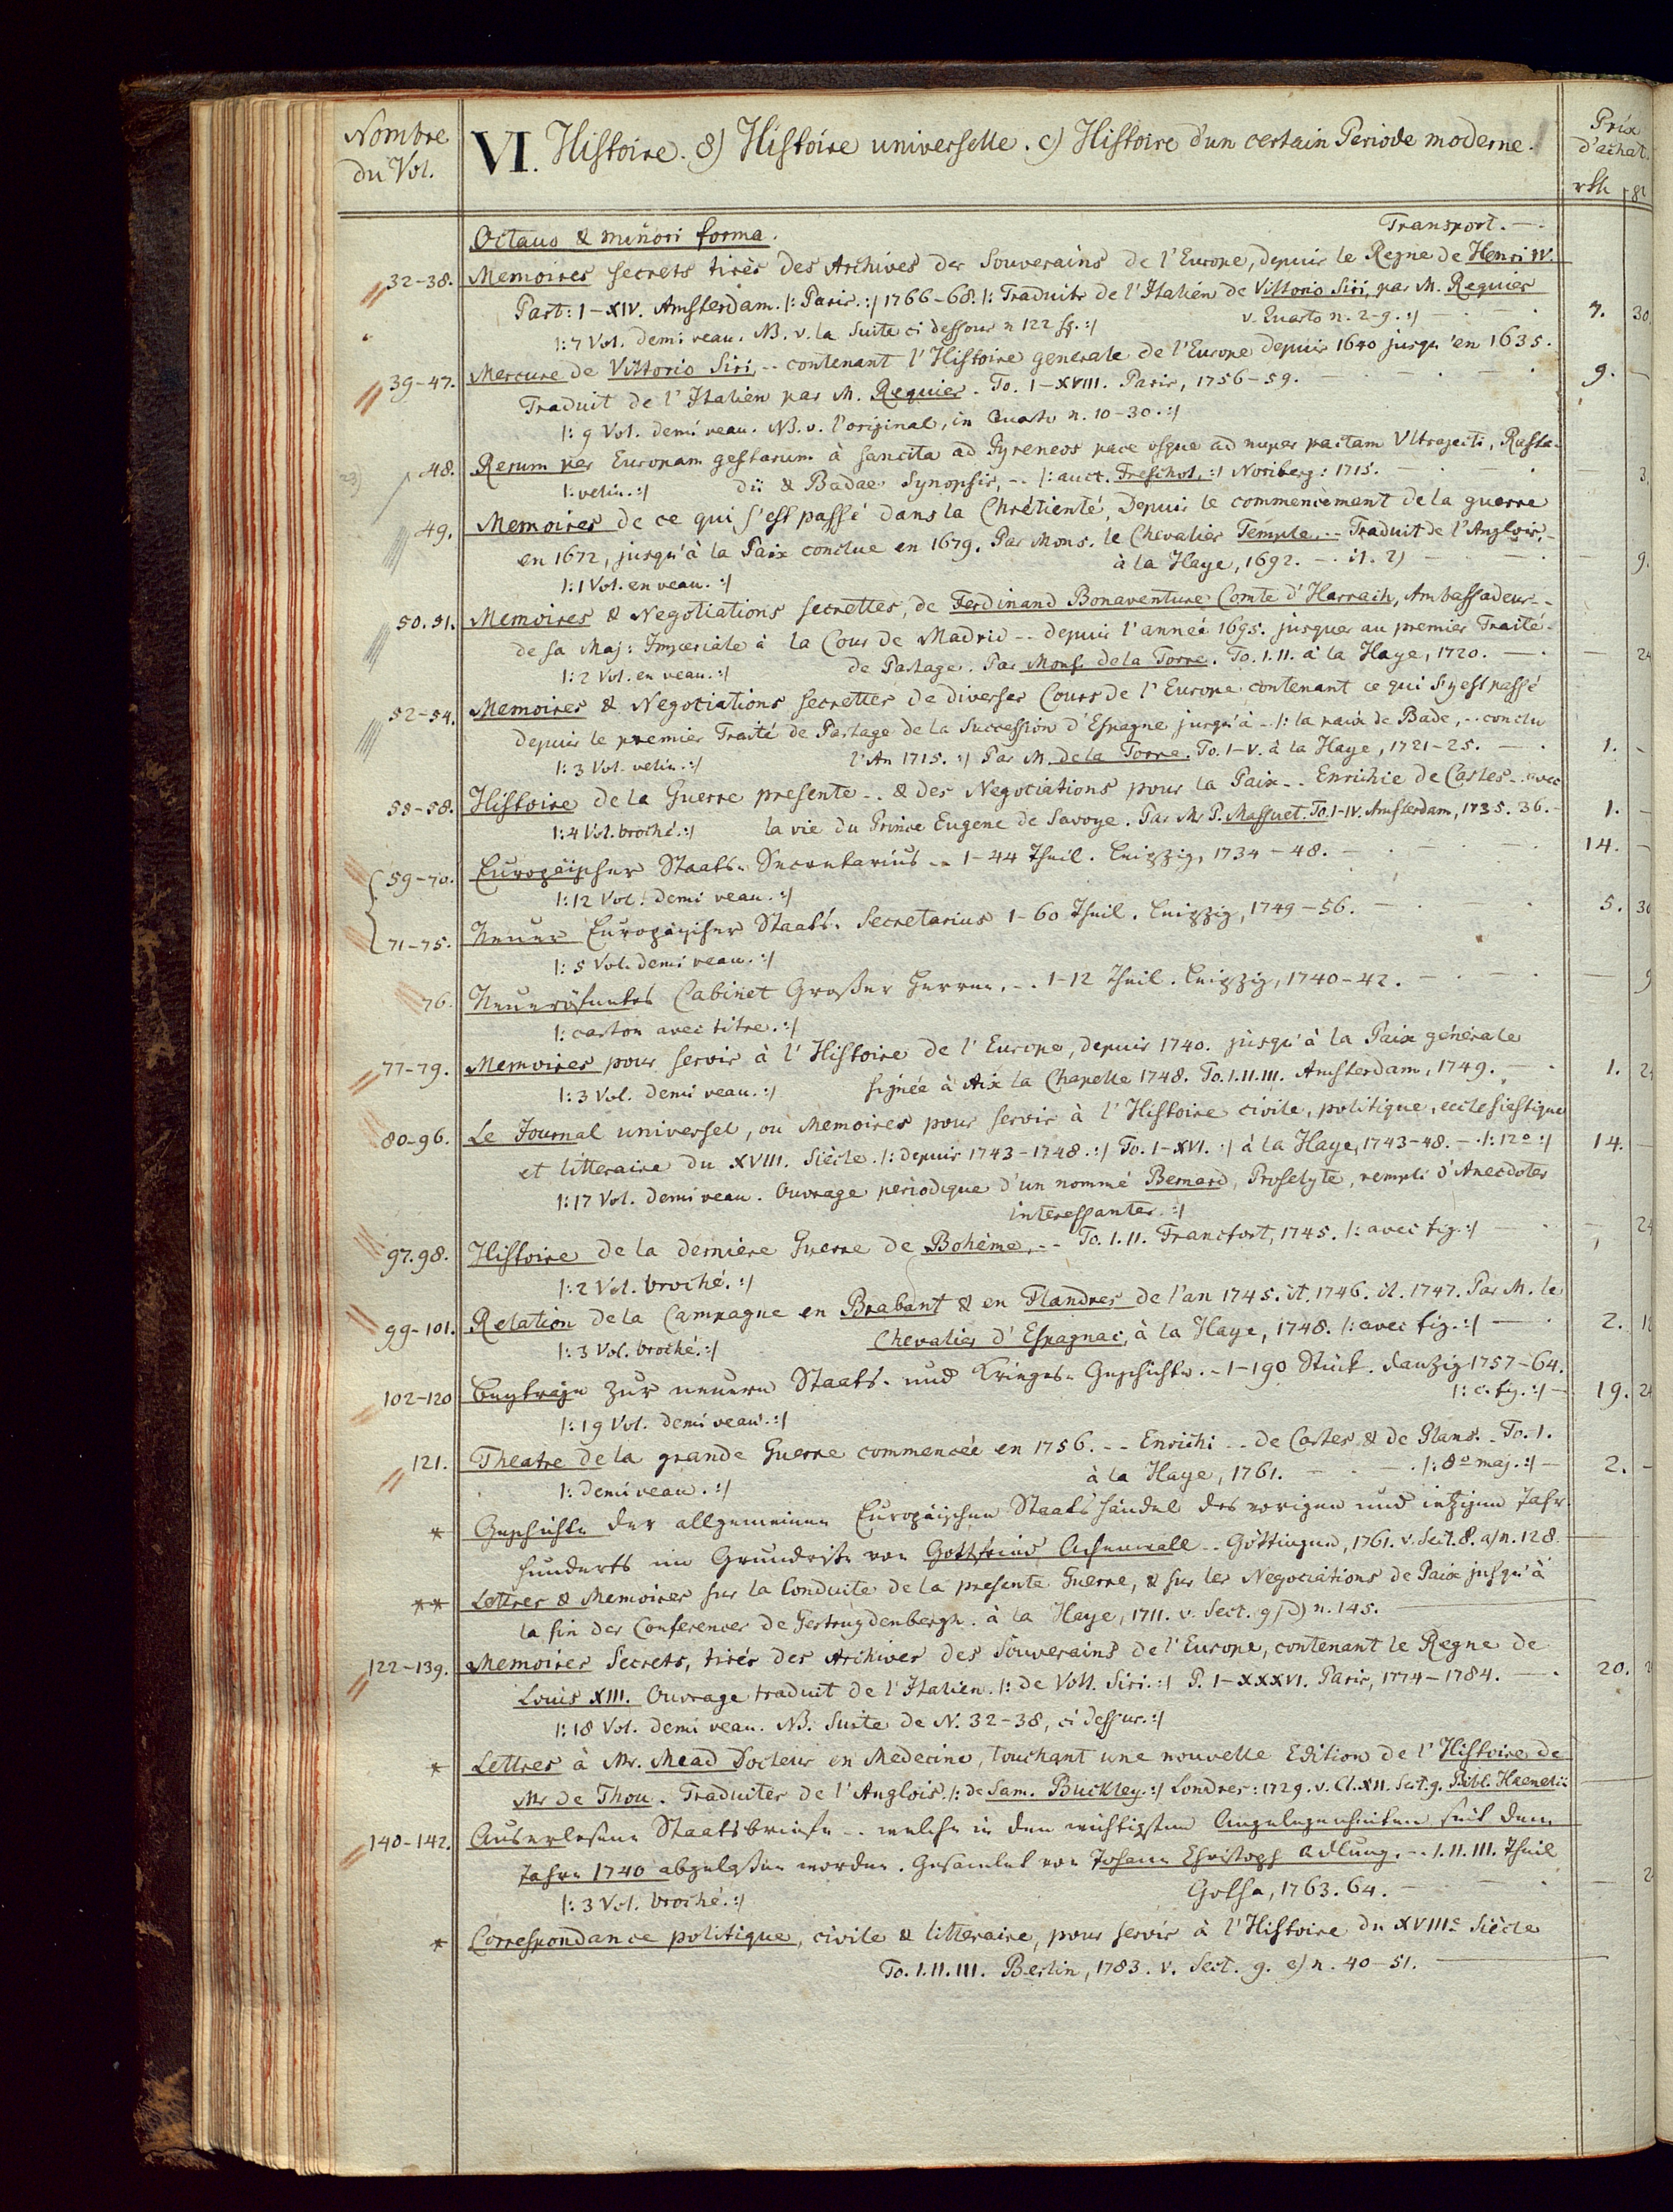 Nombre du Vol.
VI. Histoire. 8) Histoire universelle. c) Histoire d'un certain Periode moderne.
Prix d'achat.
rth gr
Octavo & minori forma. Transport. —
32-38. Memoires secrets tirès des Archives des Souverains de l'Europe, depuis le Regne de Henri IV.
Part: I-XIV. Amsterdam. /: Paris. :/ 1766-68. /: Traduits de l'Italien de Vittorio Siri, par M. Requier
v. Quarto n. 2-9. :/ 7. 30.
/: 7 Vol. demi veau. NB. v. la Suite ci dessous n 122 sq. :/
39-47. Mercure de Vittorio Siri, -- contenant l'Histoire generale de l'Europe depuis 1640 jusqu'en 1635.
Traduit de l'Italien par M. Requier. To. I-XVIII. Paris, 1756-59. 9. —
/: 9 Vol. demi veau. NB. v. l'original, in Quarto n. 10-30. :/
48. Rerum per Europam gestarum à sancita ad Pyreneos pace usque ad nuper pactam Ultrajecti, Rasta-
/: velin. :/ dii & Badae Synopsis, -- /: auct. Freschot, :/ Noriberg: 1715. 3.
49. Memoires de ce qui s'est passé dans la Chrétienté, Depuis le commencement de la guerre
en 1672, jusqu'à la Paix conclue en 1679. Par Mons. le Chevalier Temple -- Traduit de l'Anglois, -
à la Haye, 1692. — 9.
/: 1 Vol. en veau. :/
50. 51. Memoires & Negotiations secrettes, de Ferdinand Bonaventure Comte d'Harrach, Ambassadeur --
de sa Maj: Imperiale à la Cour de Madrid -- depuis l'anneé 1695. jusques au premier Traité
/: 2 Vol. en veau. :/ de Partage. Par Mons. de la Torre. To. I. II. à la Haye, 1720. — 24
52-54. Memoires & Negotiations secrettes de diverses Cours de l'Europe contenant ce qui s'y est passé
depuis le premier Traité de Partage de la Succession d'Espagne jusqu'à -- /: la paix de Bade, -- conclu
/: 3 Vol. velin. :/ l'An 1715. :/ Par M. de la Torre. To. I-V. à la Haye, 1721-25. — 1. -
55-58. Histoire de la Guerre presente -- & des Negotiations pour la Paix -- Enrichie de Cartes -- avec
/: 4 Vol. broché. :/ la vie du Prince Eugene de Savoye. Par Mr P. Massuet. To. I-IV. Amsterdam, 1735. 36. — 1. -
59-70. Europäischer Staats-Secretarius -- 1-44 Theil. Leipzig, 1734-48. 14. -
/: 12 Vol. demi veau. :/
71-75. Neuer Europäischer Staats-Secretarius 1-60 Theil. Leipzig, 1749-56. 5. 30
/: 5 Vol. demi veau. :/
76. Neueröfnetes Cabinet Großer Herren, -- 1-12 Theil. Leipzig, 1740-42. — 9
/: carton avec titre. :/
77-79. Memoires pour servir à l'Histoire de l'Europe, depuis 1740. jusqu'à la Paix générale
/: 3 Vol. demi veau. :/ signée à Aix la Chapelle 1748. To. I. II. III. Amsterdam, 1749. 1. 24
80-96. Le Journal universel, ou Memoires pour servir à l'Histoire civile, politique, ecclesiestique
et litteraire du XVIII. Siècle. /: Depuis 1743-1748. :/ To. I-XVI. :/ à la Haye, 1743-48. — /: 12° :/ 14. —
/: 17 Vol. demi veau. Ouvrage periodique d'un nommé Bernard, Proselyte, rempli d'Anecdotes
interessantes. :/
97. 98. Histoire de la derniere Guerre de Bohème, -- To. I. II. Francfort, 1745. /: avec fig. :/ — 24
/: 2 Vol. broché. :/
99-101. Relation de la Campagne en Brabant & en Flandres de l'an 1745. it. 1746. it. 1747. Par M. le
/: 3 Vol. broché. :/ Chevalier d'Espagnac, à la Haye, 1748. /: avec fig. :/ — 2. 18
102-120 Beytraege zur neuern Staats- und Krieges-Geschichte. - 1-190 Stück. Danzig 1757-64.
/: c. fig. :/ — 19. 24
/: 19 Vol. demi veau. :/
121. Theatre de la grande Guerre commenceé en 1756. -- Enrichi -- de Cartes & de Plans. - To. I.
à la Haye, 1761. — /: 8° maj. :/ — 2. -
/: demi veau. :/
* Geschichte der allgemeinen Europäischen Staatshändel des vorigen und jetzigen Jahr-
hunderts im Grundriße von Gottfried Achenwall -- Göttingen, 1761. v. Sect. 8. a) n. 128
** Lettres & Memoires sur la Conduite de la presente Guerre, & sur les Negociations de Paix jusqu'à
la fin des Conferences de Gertrugdenbergh. à la Haye, 1711. v. Sect. 9) d) n. 145.
122-139. Memoires Secrets, tirés des Archives des Souverains de l'Europe, contenant le Regne de
Louis XIII. Ouvrage traduit de l'Italien. /: de Vitt. Siri. :/ P. I-XXXVI. Paris, 1774-1784. — 20.
/: 18 Vol. demi veau. NB. Suite de N. 32-38, ci dessus. :/
* Lettres à Mr. Mead Docteur en Medecine, touchant une nouvelle Edition de l'Histoire de
Mr de Thou. Traduites de l'Anglois. /: de Sam. Buckley. :/ Londres: 1729. v. Cl. XII. Sect. 9. Bibl. Haenelii
140-142. Auserlesene Staatsbriefe -- welche in den wichtigsten Angelegenheiten seit dem
Jahre 1740 abgelaßen worden. Gesamlet von Johann Christoph Adlung. -- I. II. III. Theil
Gotha, 1763. 64. — 2
/: 3 Vol. broché. :/
* Correspondance politique, civile & litteraire, pour servir à l'Histoire du XVIIIe Siècle
To. I. II. III. Berlin, 1783. v. Sect. 9. e) n. 40-51.